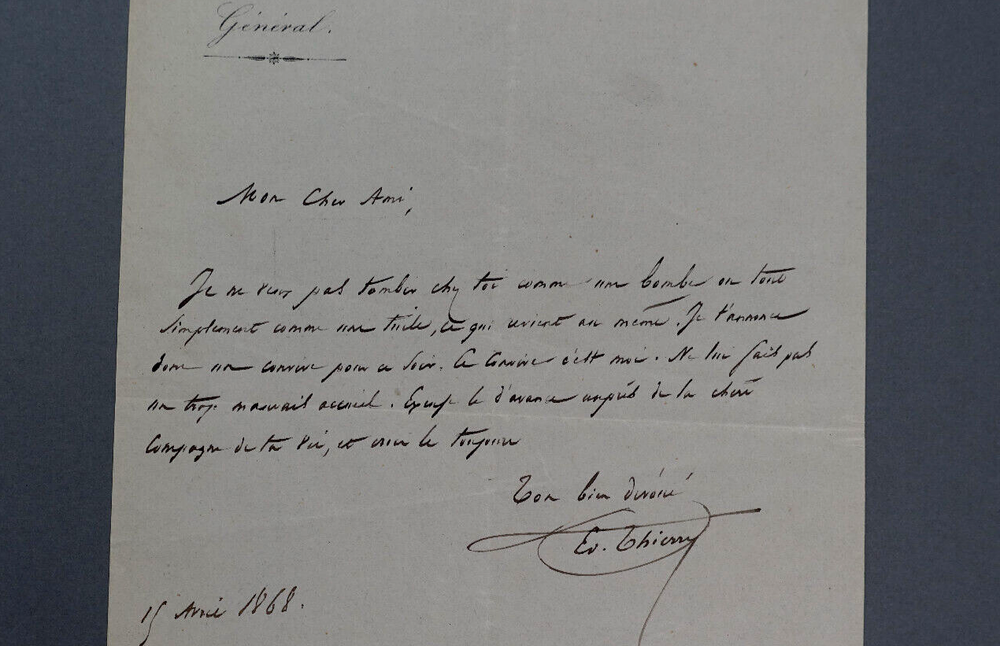 Général.
Mon Cher Ami,
Je ne veux pas tomber chez toi comme une bombe ou tout
simplement comme une tuile, ce qui revient au même. Je t'annonce
donc un convive pour ce soir. Ce convive c'est moi. Ne lui fais pas
un trop mauvais accueil. Excuse le d'avance auprès de la chère
Compagne de ta vie, et crois le toujours
Ton bien dévoué
Ed. Thierry
15 Avril 1868.